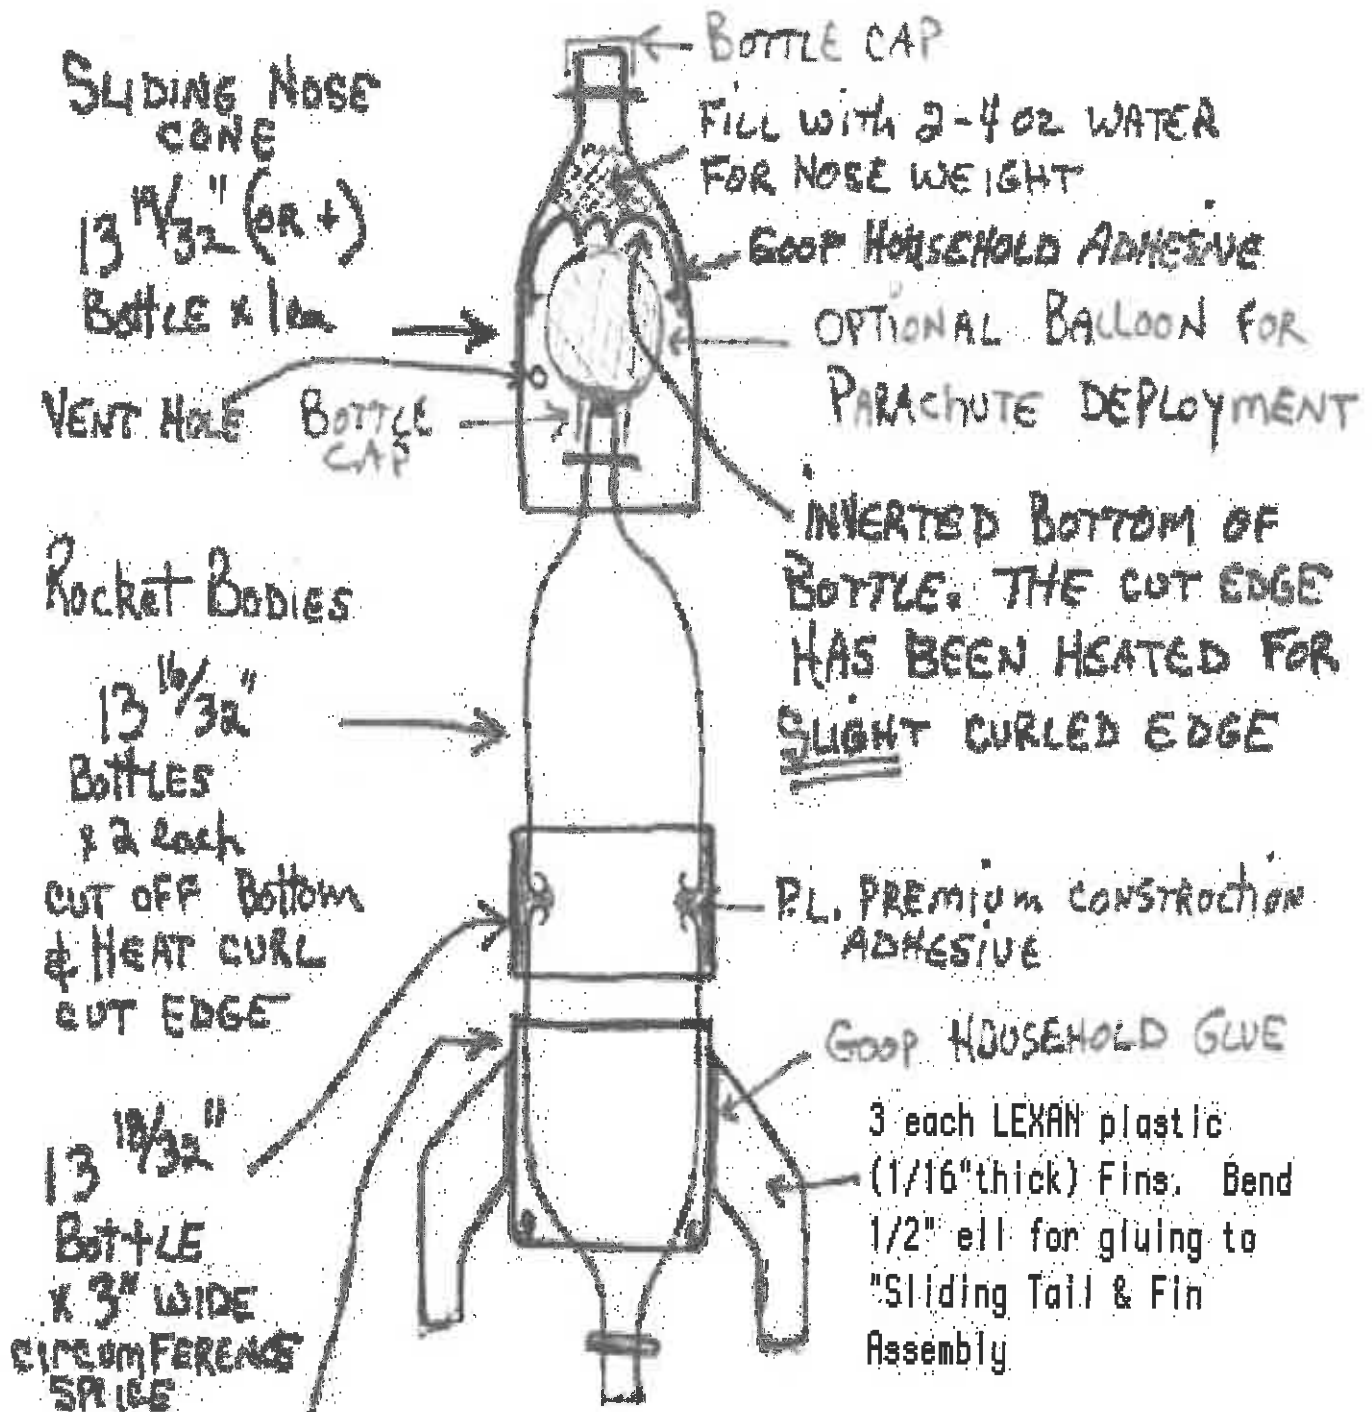 BOTTLE CAP
SLIDING NOSE
CONE
13 19/32" (OR +)
BottLE x 1ea
VENT HOLE
BOTTLE
CAP
FILL WITH 2-4 OZ WATER
FOR NOSE WEIGHT
GOOP HOUSEHOLD ADHESIVE
OPTIONAL BALLOON FOR
PARACHUTE DEPLOYMENT
INVERTED BOTTOM OF
BOTTLE. THE CUT EDGE
HAS BEEN HEATED FOR
SLIGHT CURLED EDGE
Rocket Bodies
13 16/32"
BottLES
x 2 each
CUT OFF Bottom
& HEAT CURL
CUT EDGE
P.L. PREMIUM CONSTRUCTION
ADHESIVE
13 18/32"
BottLE
x 3" WIDE
circumFERENCE
SPLICE
GOOP HOUSEHOLD GLUE
3 each LEXAN plastic
(1/16"thick) Fins. Bend
1/2" ell for gluing to
"Sliding Tail & Fin
Assembly